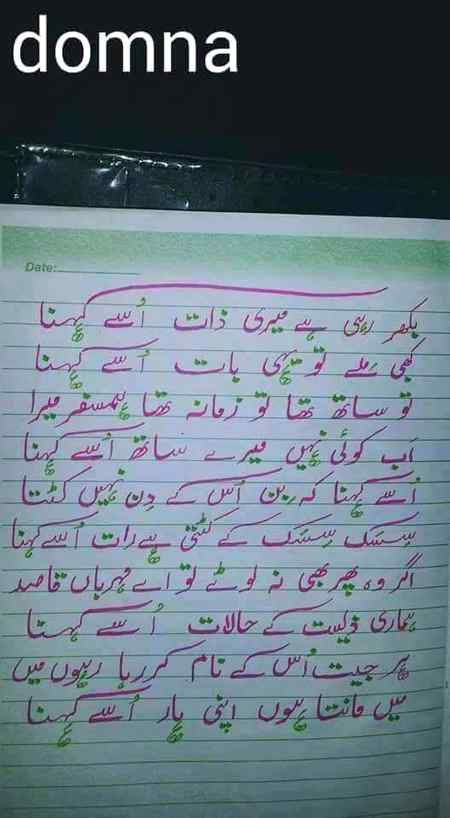 domna
Date:
بکھر رہی ہے میری ذات اُسے کہنا
کبھی ملے تو یہی بات اُسے کہنا
تو ساتھ تھا تو زمانہ تھا ہمسفر میرا
اَب کوئی نہیں میرے ساتھ اُسے کہنا
اُسے کہنا کہ بِن اُس کے دِن نہیں کٹتا
سِسک سِسک کے کٹتی ہے رات اُسے کہنا
اگر وہ پھر بھی نہ لوٹے تو اے مہرباں قاصد
ہماری ذیست کے حالات اُسے کہنا
ہر جیت اُس کے نام کر رہا ہوں میں
میں مانتا ہوں اپنی ہار اُسے کہنا